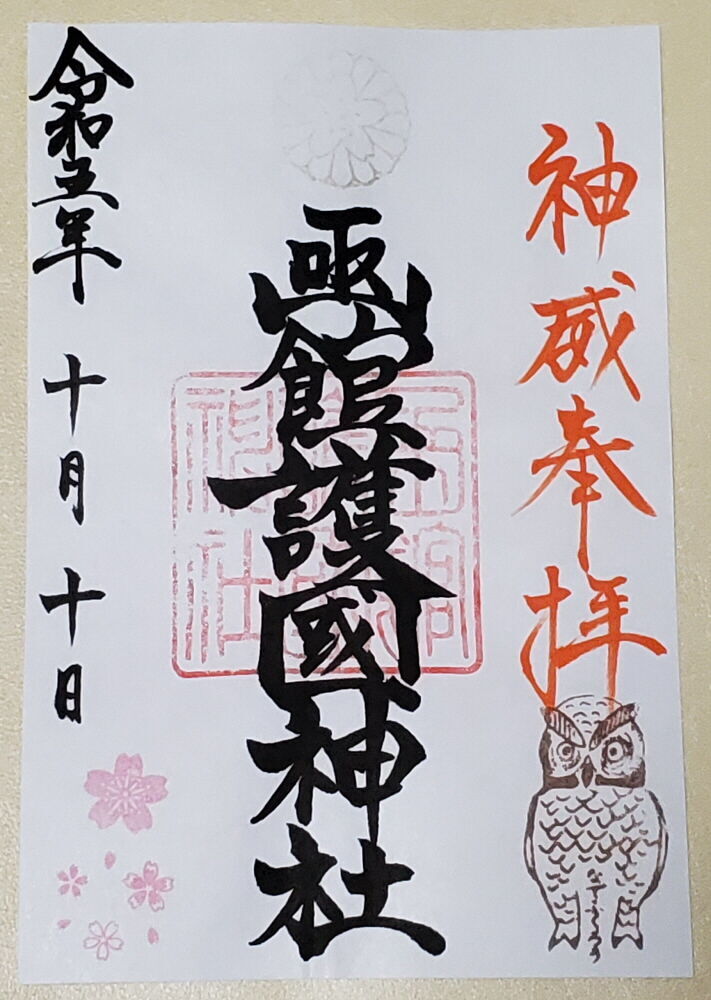 神威奉拝
函館護國神社
令和五年 十月 十日